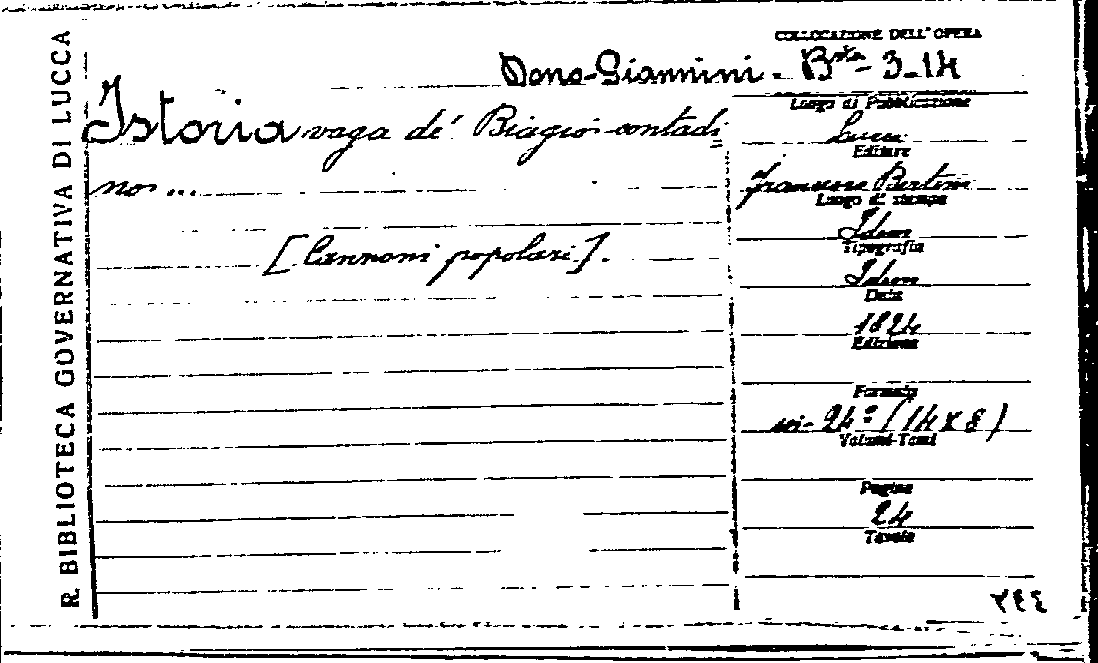 R. BIBLIOTECA GOVERNATIVA DI LUCCA
COLLOCAZIONE DELL'OPERA
Dono-Giannini. - Bta - 3-14
Istoria vaga dé Biagio contadi
no ...
[Canzoni popolari].
Luogo di Pubblicazione
Lucca
Editore
Francesco Bertini
Luogo di stampa
Idem
Tipografia
Idem
Data
1824
Edizione
Formato
in-24º (14 x 8)
Volumi-Tomi
Pagine
24
Tavole